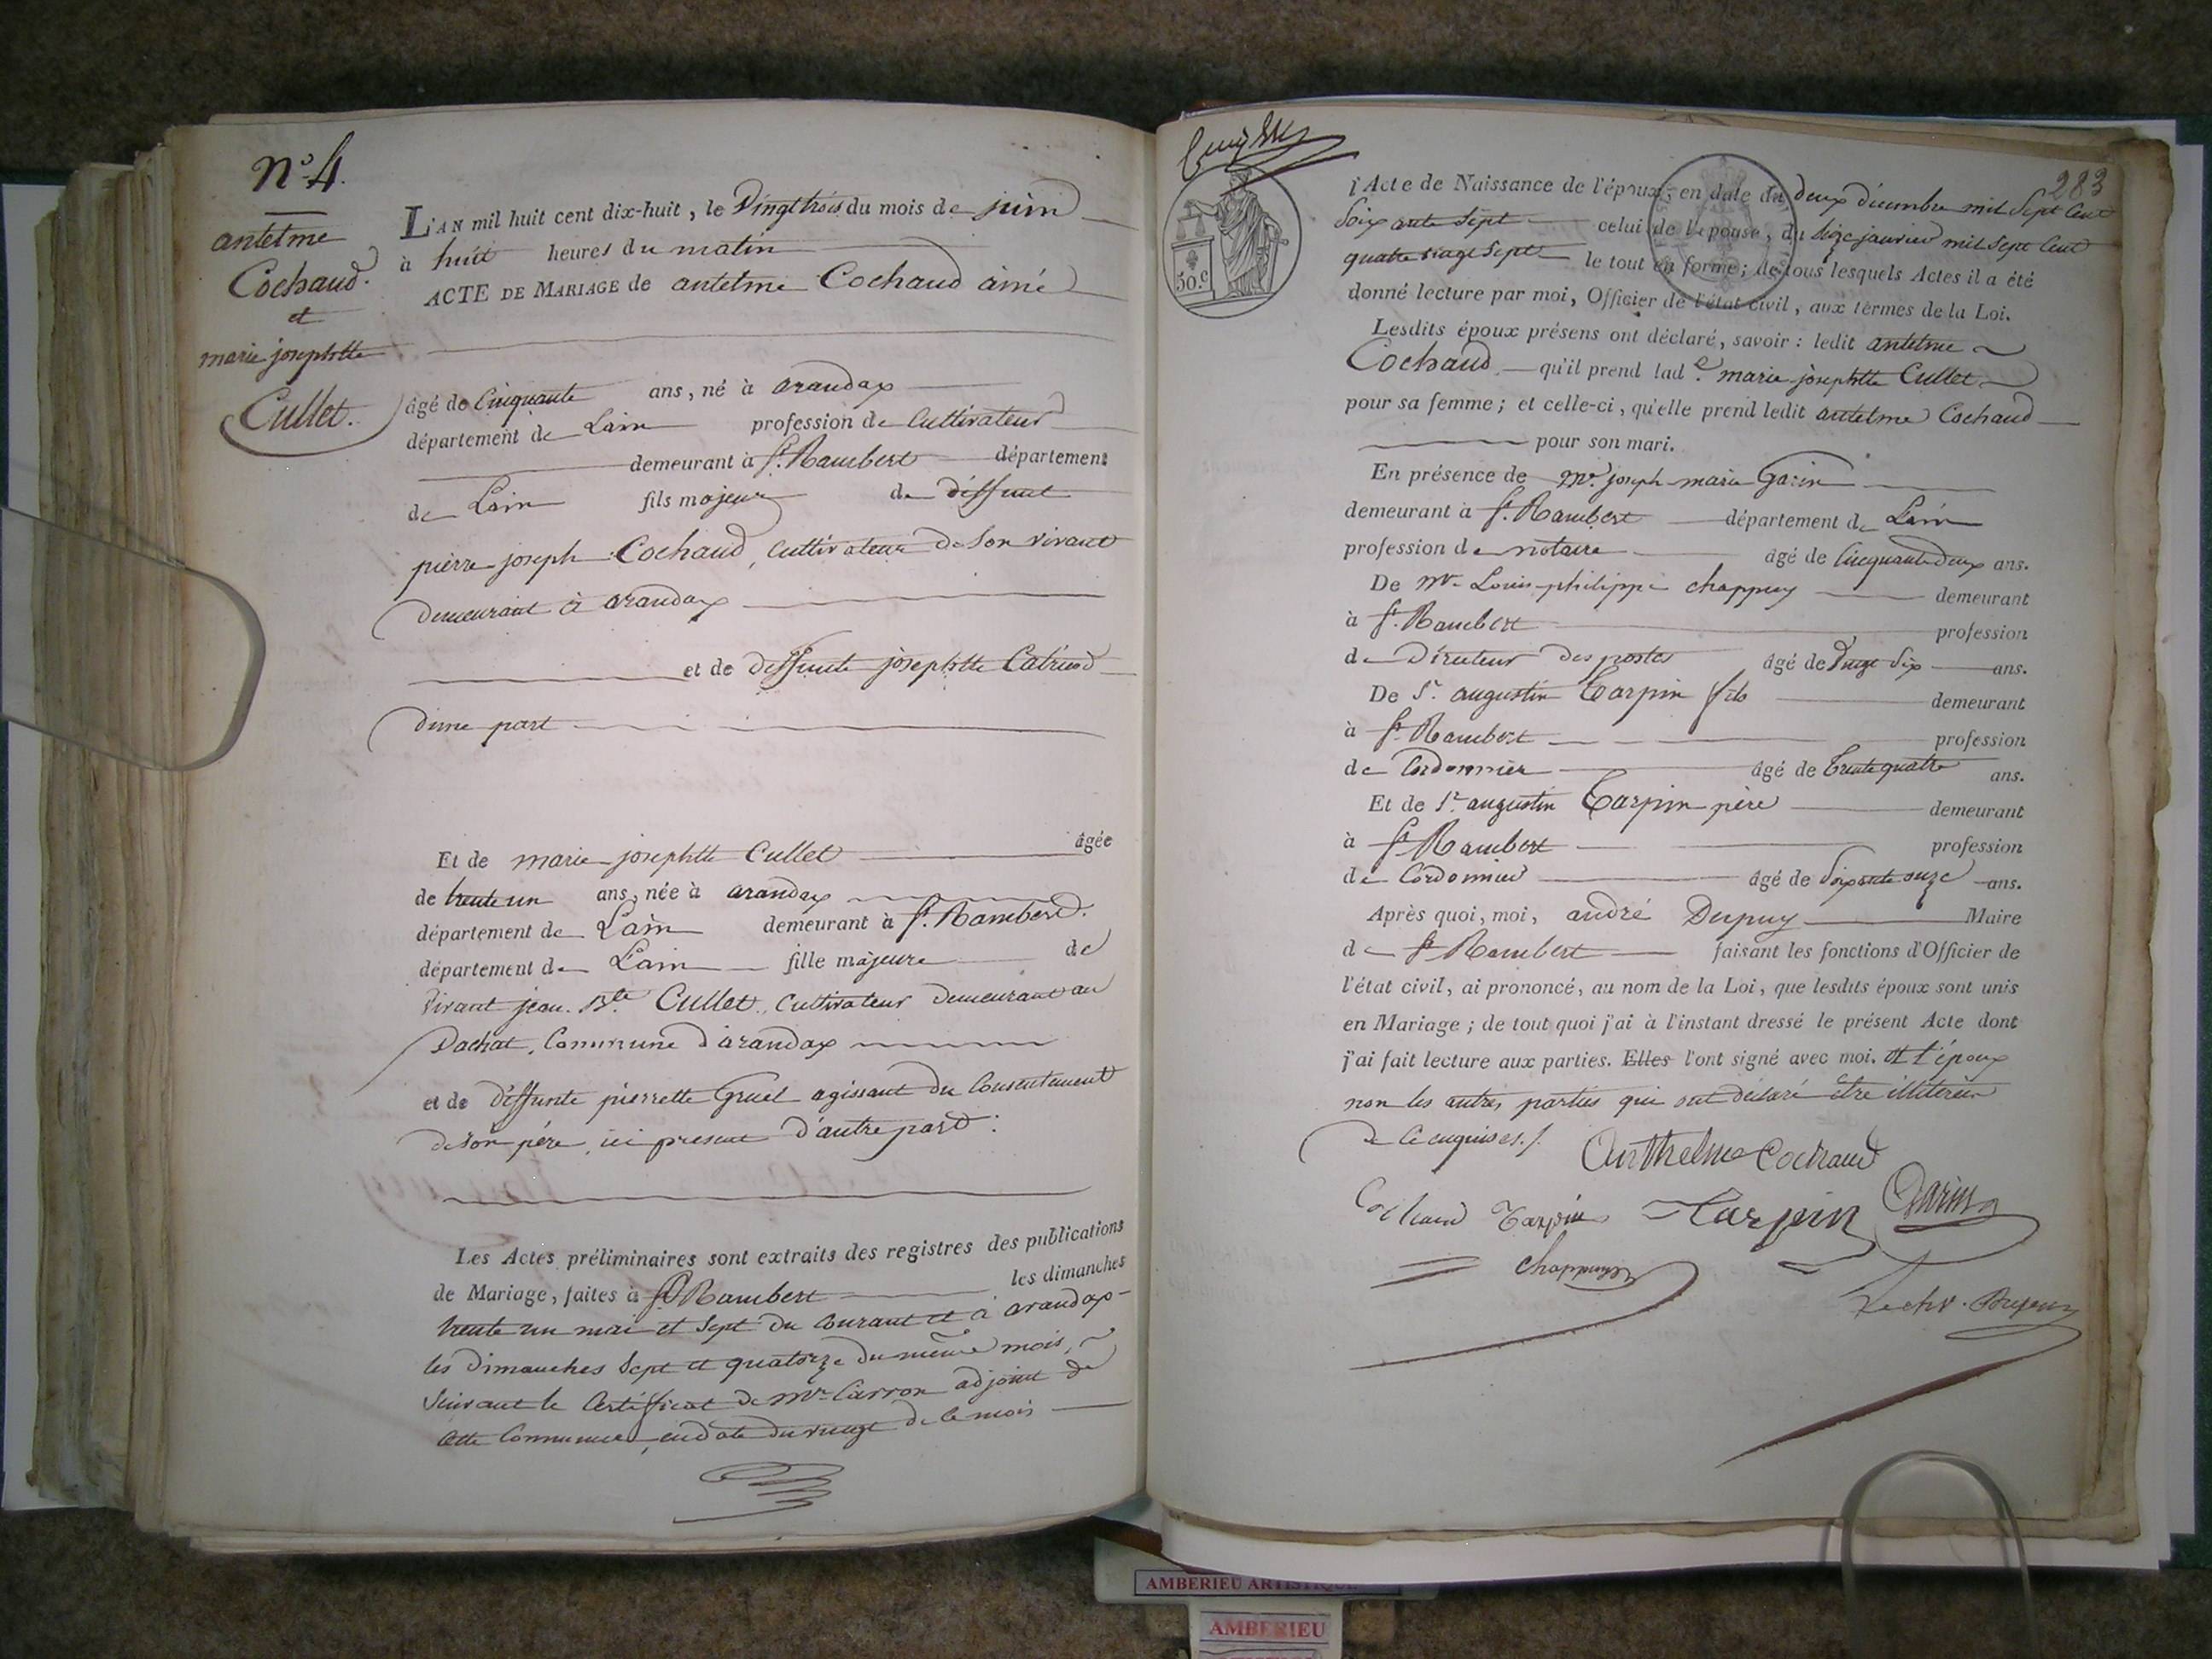 N.o 4.
antelme
Cochaud.
et
marie josephtte
Cullet.
L'AN mil huit cent dix-huit, le Vingt trois du mois de juin
à huit heures du matin
ACTE DE MARIAGE de antelme Cochaud ainé
âgé de Cinquante ans, né à arandax
département de Lain profession de Cultivateur
demeurant à St. Rambert département
de Lain fils majeur de deffunt
pierre joseph Cochaud, Cultivateur de Son vivant
demeurant à arandax
et de deffunte josephtte
d'une part
Et de marie josephtte Cullet âgée
de trente un ans, née à arandax
département de Lain demeurant à St. Rambert.
département de Lain fille majeure de
Vivant jean Bte. Cullet, Cultivateur demeurant au
Dachat, Commune d'arandax
et de deffunte pierrette Gruel agissant du Consentement
de Son père, ici present d'autre part.
Les Actes préliminaires sont extraits des registres des publications
de Mariage, faites à St Rambert les dimanches
trente un mai et Sept du Courant et à arandax
les Dimanches Sept et quatorze du même mois,
Suivant le Certifficat de Mr. Carron adjoint de
Cette Commune, en date du vingt de Ce mois
283
50.c
l'Acte de Naissance de l'époux, en date du deux décembre mil Sept Cent
Soixante Sept celui de l'épouse, du Seize janvier mil Sept Cent
quatre vingt Sept le tout en forme; de tous lesquels Actes il a été
donné lecture par moi, Officier de l'état civil, aux termes de la Loi.
Lesdits époux présens ont déclaré, savoir: ledit antelme
Cochaud qu'il prend lad.e marie josephtte Cullet
pour sa femme; et celle-ci, qu'elle prend ledit antelme Cochaud
pour son mari.
En présence de Mr. joseph marie Garin
demeurant à St. Rambert département de Lain
profession de notaire âgé de Cinquante Deux ans.
De Mr. Louis philippe chappuy demeurant
à St. Rambert profession
de Directeur des postes âgé de Vingt Six ans.
De Sr. augustin Tarpin fils demeurant
à St Rambert profession
de Cordonnier âgé de Trente quatre ans.
Et de Sr. augustin Tarpin père demeurant
à St Rambert profession
de Cordonnier âgé de Soixante onze ans.
Après quoi, moi, andré Dupuy Maire
de St Rambert faisant les fonctions d'Officier de
l'état civil, ai prononcé, au nom de la Loi, que lesdits époux sont unis
en Mariage; de tout quoi j'ai à l'instant dressé le présent Acte dont
j'ai fait lecture aux parties. Elles l'ont signé avec moi. et l'époux
non les autres parties qui ont déclaré être illitérées
de Ce enquises./.
Anthelme Cochaud
Cochaud Tarpin Tarpin Garin
chappuy
Le chr. Dupuy
AMBERIEU ARTISTIQUE
AMBERIEU